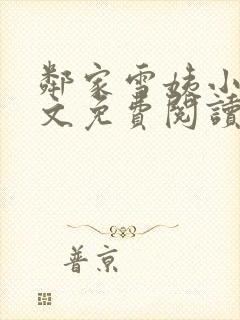 鄰家雪姨小
文免費閱讀
普京